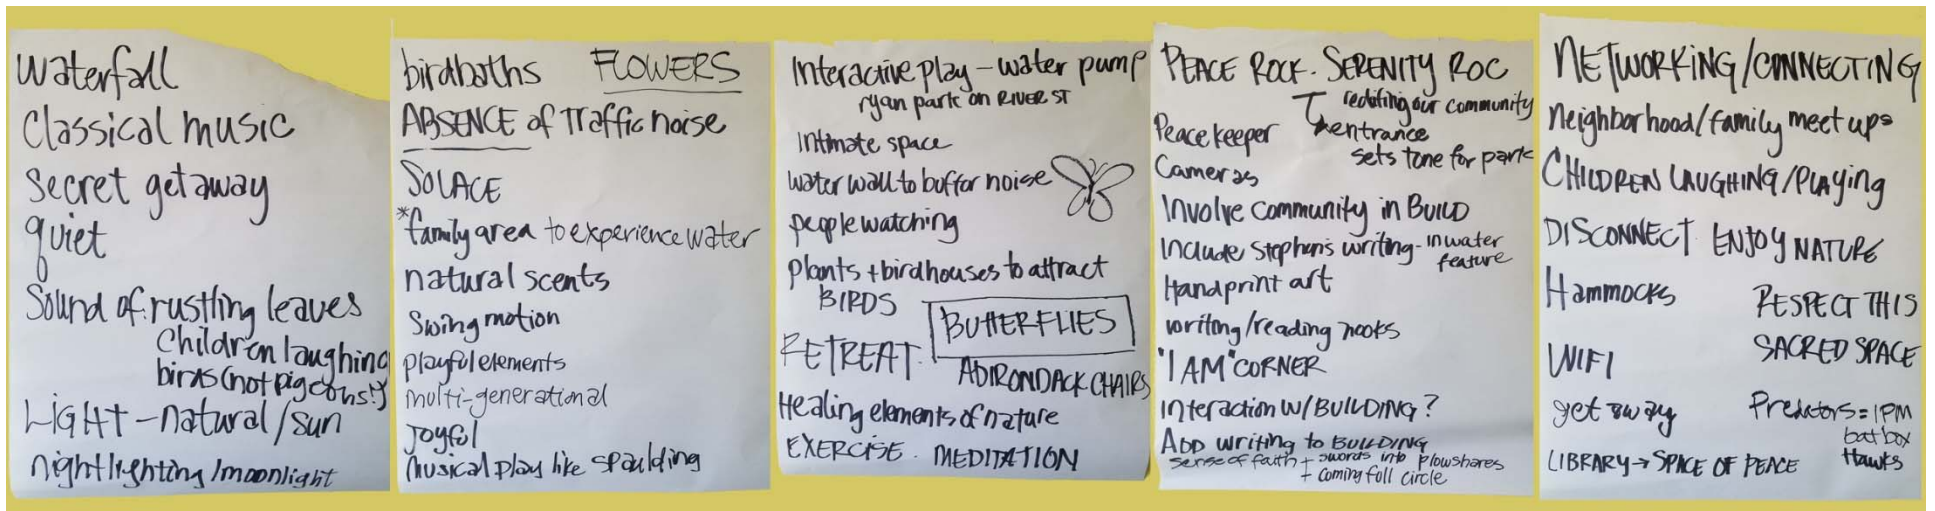 waterfall
Classical music
Secret getaway
quiet
Sound of: rustling leaves
Children laughing
birds (not pigeons!)
LIGHT - natural/sun
nightlighting/moonlight
birdbaths FLOWERS
ABSENCE of Traffic noise
SOLACE
*family area to experience water
natural scents
Swing motion
playful elements
multi-generational
Joyful
musical play like spaulding
Interactive play - water pump
ryan park on RIVER ST
Intimate space
water wall to buffor noise
people watching
Plants + birdhouses to attract
BIRDS
BUTTERFLIES
RETREAT
ADIRONDACK CHAIRS
Healing elements of nature
EXERCISE. MEDITATION
PEACE ROCK. SERENITY ROC
our community
Peacekeeper
entrance
sets tone for park
Cameras
Involve community in BUILD
Include Stephen's writing - in water
feature
Handprint art
writing/reading nooks
"I AM" CORNER
Interaction w/BUILDING?
ADD writing to BUILDING
sense of faith + swords into plowshares
+ coming full circle
NETWORKING/CONNECTING
Neighborhood/family meet ups
CHILDREN LAUGHING/PLAying
DISCONNECT. ENJOY NATURE
Hammocks
RESPECT THIS
SACRED SPACE
WIFI
get away
Predators = IPM
bat box
Hawks
LIBRARY → SPACE OF PEACE